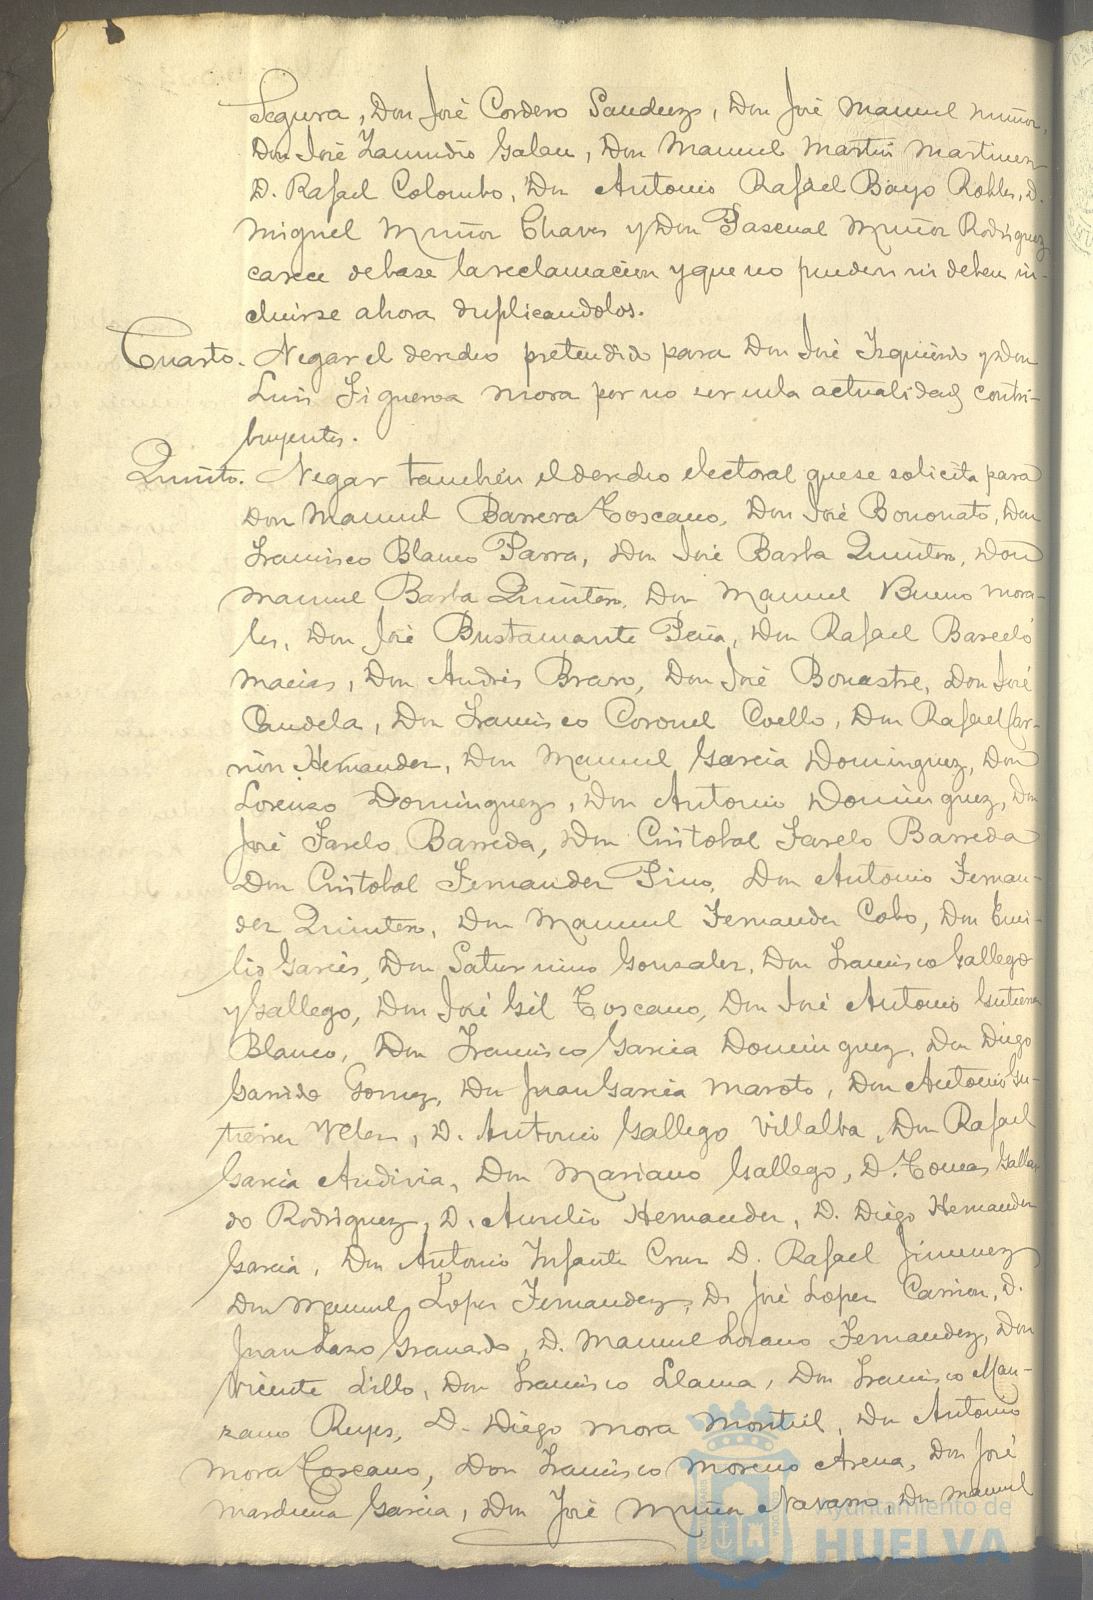 Segura, Don José Cordero Sanduzo, Don José Manuel Muñoz,
Don José Zamudio Galan, Don Manuel Martin Martinez
D. Rafael Colombo, Don Antonio Rafael Bayo Robles, D.
Miguel Muñoz Chaves y Don Pascual Muñoz Rodriguez
carece de base la reclamacion y que no pueden ni deben in-
cluirse ahora duplicandolos.
Cuarto. Negar el derecho pretendido para Don José Izquierdo y Don
Luis Figueroa Mora por no ser en la actualidad contri-
buyentes.
Quinto. Negar tambien el derecho electoral que se solicita para
Don Manuel Barrera Toscano, Don José Bononato, Don
Francisco Blanco Parra, Don José Barba Quintero, Don
Manuel Barba Quintero, Don Manuel Bueno Mora-
les, Don José Bustamante Peña, Don Rafael Barceló
Macias, Don Andrés Bravo, Don José Bonastre, Don José
Candela, Don Francisco Coronel Coello, Don Rafael Car-
rion Hernandez, Don Manuel Garcia Dominguez, Don
Lorenzo Dominguez, Don Antonio Dominguez, Don
José Farelo Barreda, Don Cristobal Farelo Barreda
Don Cristobal Fernandez Pino, Don Antonio Fernan-
dez Quintero, Don Manuel Fernandez Cobo, Don Emi-
lio Garcés, Don Saturnino Gonzalez, Don Francisco Gallego
y Gallego, Don José Gil Toscano, Don José Antonio Gutierrez
Blanco, Don Francisco Garcia Dominguez, Don Diego
Garrido Gomez, Don Juan Garcia Maroto, Don Antonio Gu-
tierrez Velez, D. Antonio Gallego Villalba, Don Rafael
Garcia Audivia, Don Mariano Gallego, D. Tomas Galla-
do Rodriguez, D. Aurelio Hernandez, D. Diego Hernandez
Garcia, Don Antonio Infante Cruz D. Rafael Jimenez
Don Manuel Lopez Fernandez, D. José Lopez Carrion, D.
Juan Lazo Granado, D. Manuel Lozano Fernandez, Don
Vicente Lillo, Don Francisco Llama, Don Francisco Man-
zano Reyes, D. Diego Mora Montiel, Don Antonio
Mora Toscano, Don Francisco Moreno Arena, Don José
Mardueña Garcia, Don José Muñoz Navarro, Don Manuel
Ayuntamiento de
HUELVA